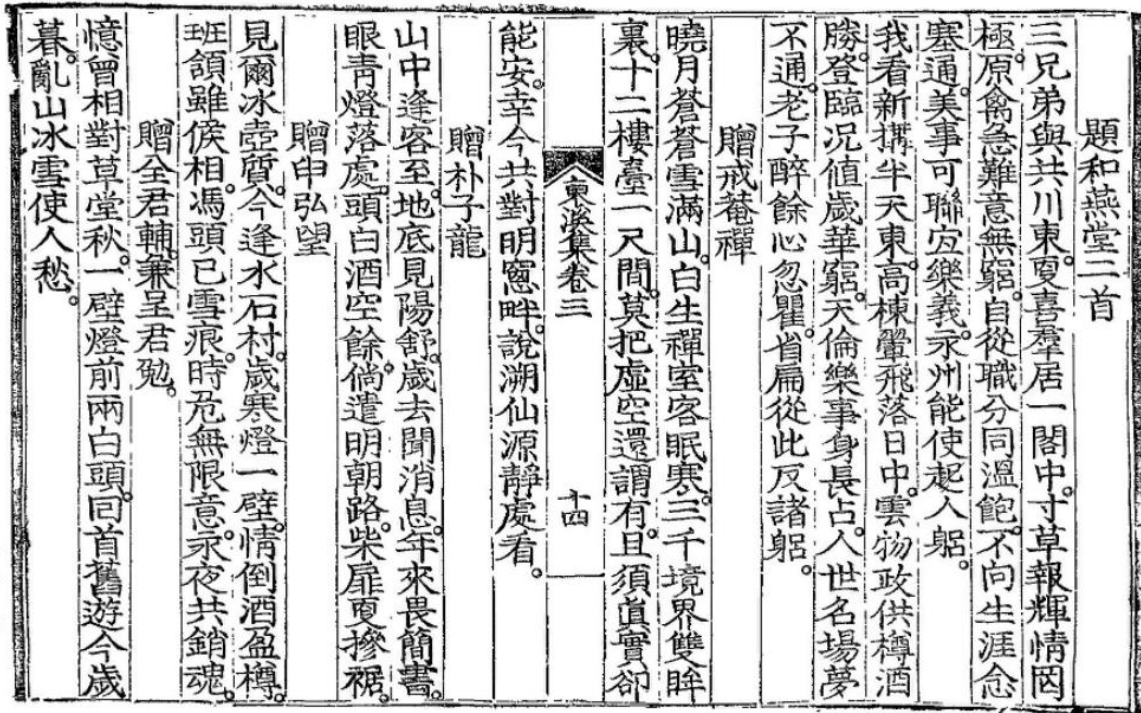 題和燕堂二首
三兄弟與共川東。夏喜羣居一閣中。寸草報輝情罔
極。原禽急難意無窮。自從職分同溫飽。不向生涯念
塞通。美事可聯宜樂義。永州能使起人躬。
我看新搆半天東。高棟翬飛落日中。雲物政供樽酒
勝。登臨况值歲華窮。天倫樂事身長占。人世名場夢
不通。老子醉餘心忽瞿。省扁從此反諸躬。
贈戒菴禪
曉月蒼蒼雪滿山。白生禪室客眠寒。三千境界雙眸
裏。十二樓臺一尺間。莫把虛空還謂有。且須眞實卻
東溪集卷三
十四
能安。幸今共對明窓畔。說溯仙源靜處看。
贈朴子龍
山中逢客至。地底見陽舒。歲去聞消息。年來畏簡書。
眼靑燈落處。頭白酒空餘。倘遣明朝路。柴扉更摻裾。
贈申弘望
見爾冰壺質。今逢水石村。歲寒燈一壁。情倒酒盈樽。
班頷雖侯相。馮頭已雪痕。時危無限意。永夜共銷魂。
贈全君輔。兼呈君勉。
憶曾相對草堂秋。一壁燈前兩白頭。回首舊遊今歲
暮。亂山冰雪使人愁。